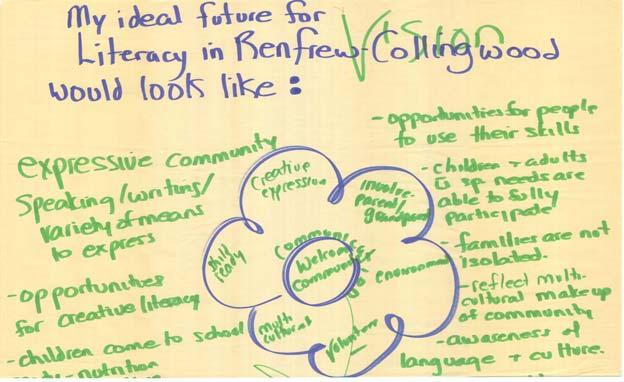 My ideal future for
Literacy in Renfrew-Collingwood
would look like :
Vision
expressive community
Speaking/writing/
variety of means
to express
- opportunities
for creative literacy
- children come to school
nutrition
creative
expression
involve
parent/grandparent
environment
Volunteer
multi
cultural
skill
ready
Communication
Welcome
community
- opportunities for people
to use their skills
- children + adults
sp. needs are
able to fully
participate
- families are not
isolated.
- reflect multi-
cultural makeup
of community
- awareness of
language + culture.